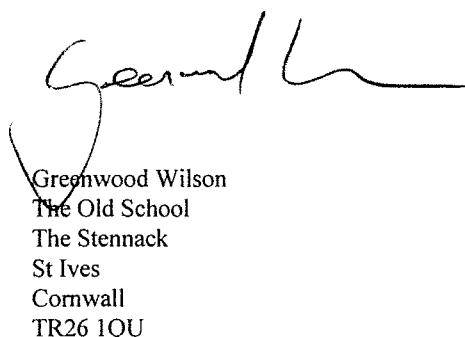 Greenwood Wilson
The Old School
The Stennack
St Ives
Cornwall
TR26 1OU